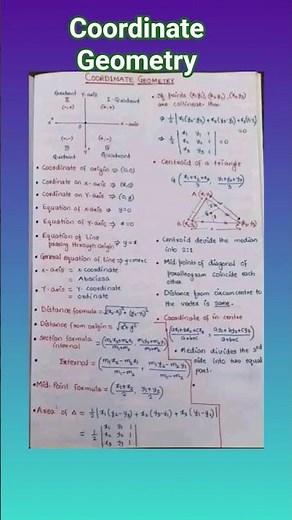 Coordinate
Geometry
COORDINATE GEOMETRY
Quadrant Y-axis
II I-Quadrant
(-,+) (+,+)
X-axis
(-,-) (+,-)
Quadrant Quadrant
• Coordinate of origin ⇒ (0,0)
• Cordinate on x-axis ⇒ (x,0)
• Cordinate on Y-axis ⇒ (0,y)
• Equation of x-axis ⇒ y=0
• Equation of y-axis ⇒ x=0
• Equation of Line
passing through origin ⇒ y=x
• General equation of line ⇒ y=mx+c
• x-axis = x coordinate
= Abscissa
• Y-axis = Y-coordinate
= ordinate
• Distance formula = √(x₂-x₁)²+(y₂-y₁)²
• Distance from origin = √x²+y²
• Section formula
internal = (m₁x₂+m₂x₁/m₁+m₂, m₁y₂+m₂y₁/m₁+m₂)
External = (m₁x₂-m₂x₁/m₁-m₂, m₁y₂-m₂y₁/m₁-m₂)
• Mid-Point formula = (x₁+x₂/2, y₁+y₂/2)
• Area of Δ = 1/2 |x₁(y₂-y₃)+x₂(y₃-y₁)+x₃(y₁-y₂)|
= 1/2 |x₁ y₁ 1
x₂ y₂ 1
x₃ y₃ 1|
• If points (x₁,y₁), (x₂,y₂), (x₃,y₃)
are collinear then
⇒ 1/2 |x₁(y₂-y₃)+x₂(y₃-y₁)+x₃(y₁-y₂)|=0
⇒ 1/2 |x₁ y₁ 1
x₂ y₂ 1
x₃ y₃ 1| =0
• Centroid of a triangle
G (x₁+x₂+x₃/3, y₁+y₂+y₃/3)
A (x₁,y₁)
G
• Centroid decide the median
into 2:1
• Mid points of diagonal of
parallelogram coincide each
other
• Distance from circumcentre to
the vertex is same.
• Coordinate of in centre
(ax₁+bx₂+cx₃/a+b+c, ay₁+by₂+cy₃/a+b+c)
• Median divides the 3rd
side into two equal
part.